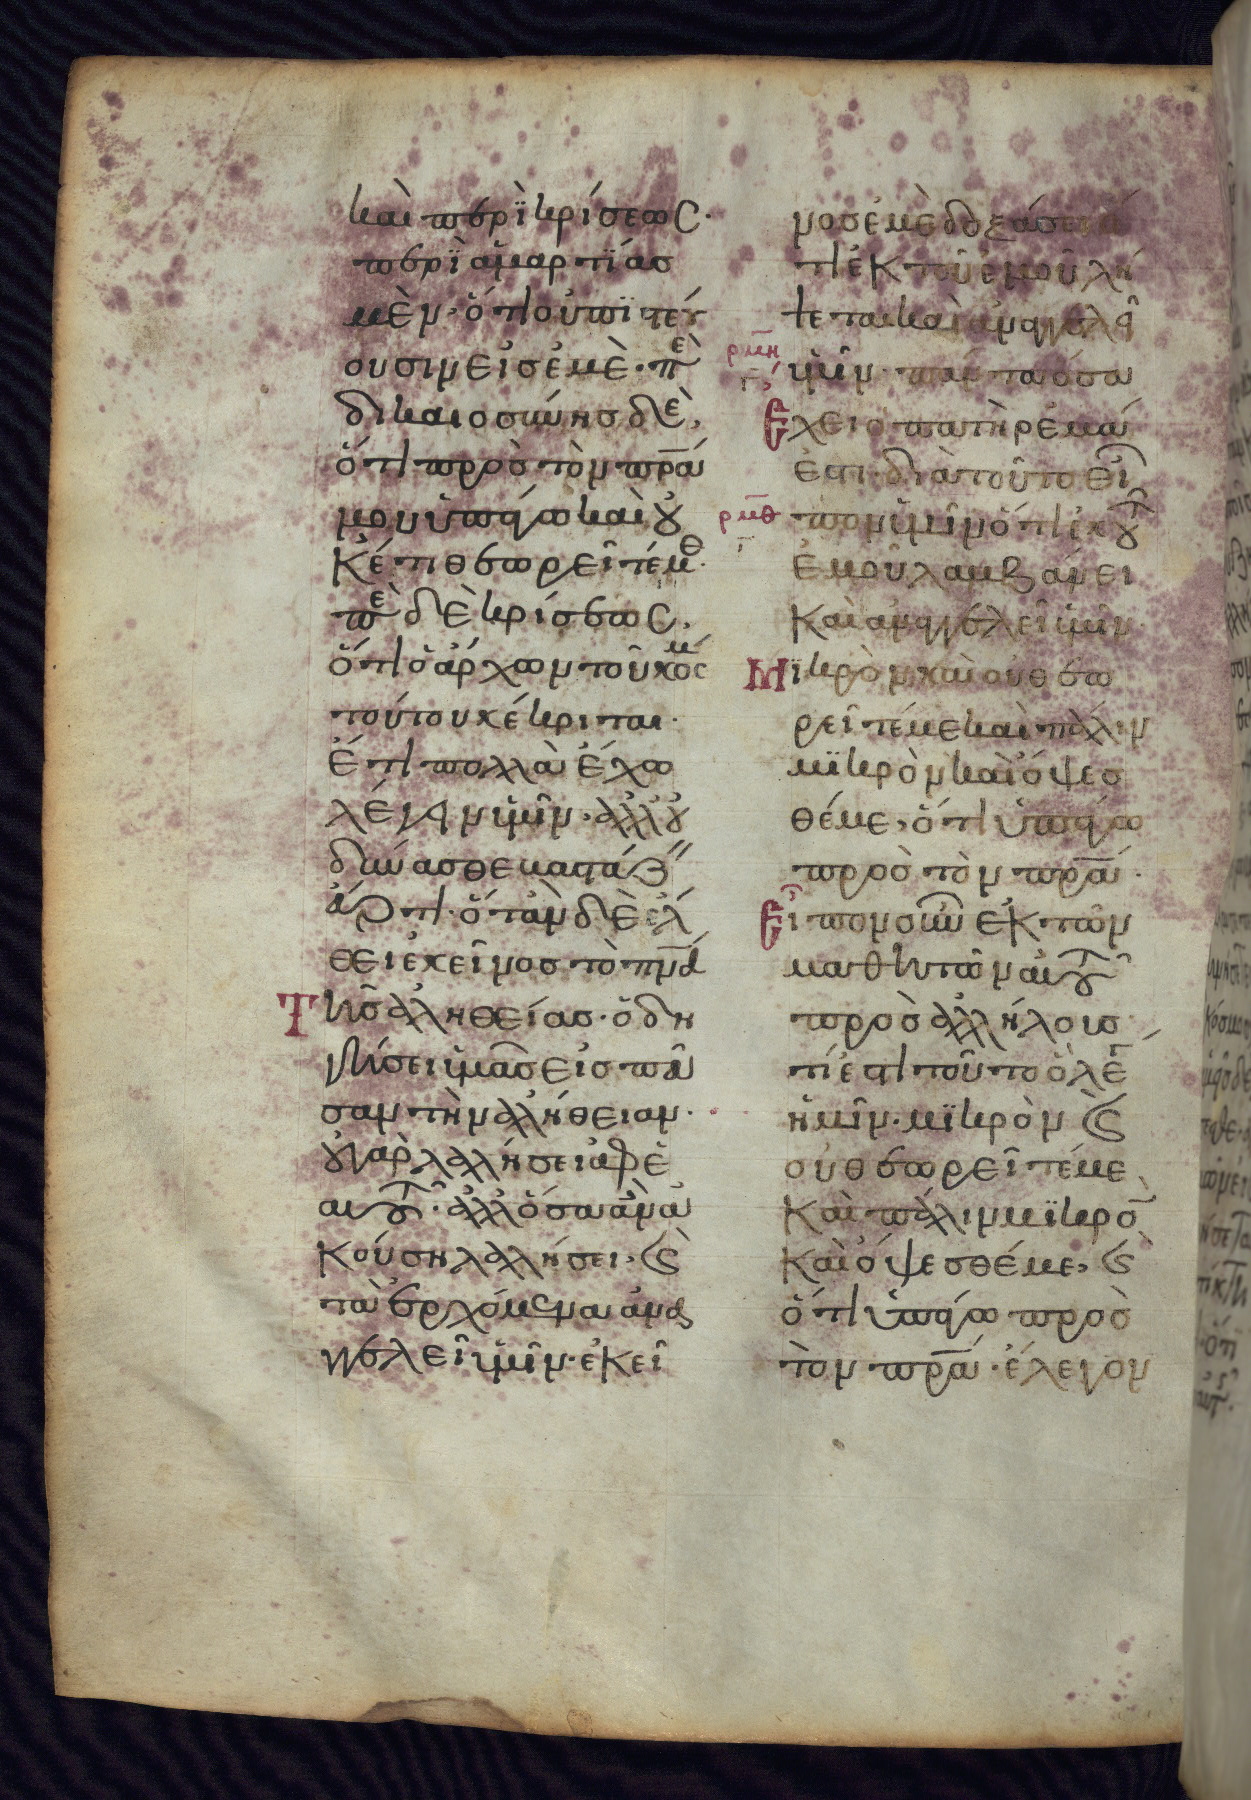 καὶ περὶ κρίσεως·
περὶ ἁμαρτίας
μὲν· ὅτι οὐ πιστεύ
ουσιν εἰς ἐμὲ· πὲ
δικαιοσύνης δὲ,
ὅτι πρὸς τὸν πρα
μου ὑπάγω καὶ οὐ
κέτι θεωρεῖτέ μθ·
πὲ δὲ κρίσεως,
ὅτι ὁ ἄρχων τοῦ κόσμ
τούτου κέκριται·
Ἔτι πολλὰ ἔχω
λέγειν ὑμῖν· ἀλλ' οὐ
δύνασθε βαστάζ
ἄρτι· ὅταν δὲ ἔλ
θει ἐκεῖνος τὸ πνα
Τῆς ἀληθείας· ὁδη
γήσει ὑμᾶς εἰς πᾶ
σαν τὴν ἀλήθειαν·
οὐ γὰρ λαλήσει ἀφ' ἑ
αυτοῦ· ἀλλ' ὅσα ἂν ἀ
κούση λαλήσει, καὶ
τὰ ἐρχόμενα ἀναγ
γελεῖ ὑμῖν· ἐκεῖ
νος ἐμὲ δοξάσει ὅ
τι ἐκ τοῦ ἐμοῦ λή
ψεται καὶ ἀναγγελεῖ
ρμη ὑμῖν· πάντα ὅσα
Ἔχει ὁ πατὴρ ἐμά
ἐστι· διὰ τοῦτο εἶ
ρμθ πον ὑμῖν ὅτι ἐκ τοῦ
ἐμοῦ λαμβάνει
καὶ ἀναγγελεῖ ὑμῖν·
Μικρὸν καὶ οὐ θεω
ρεῖτέ με καὶ πάλιν
μικρὸν καὶ ὄψεσ
θέ με, ὅτι ὑπάγω
πρὸς τὸν πρα·
Εἶπον οὖν ἐκ τῶν
μαθητῶν αυτοῦ
πρὸς ἀλλήλους
τί ἐστι τοῦτο ὃ λέγ
ἡμῖν· μικρὸν καὶ
οὐ θεωρεῖτέ με
καὶ πάλιν μικρο
καὶ ὄψεσθέ με, καὶ
ὅτι ὑπάγω πρὸς
τὸν πρα· ἔλεγον